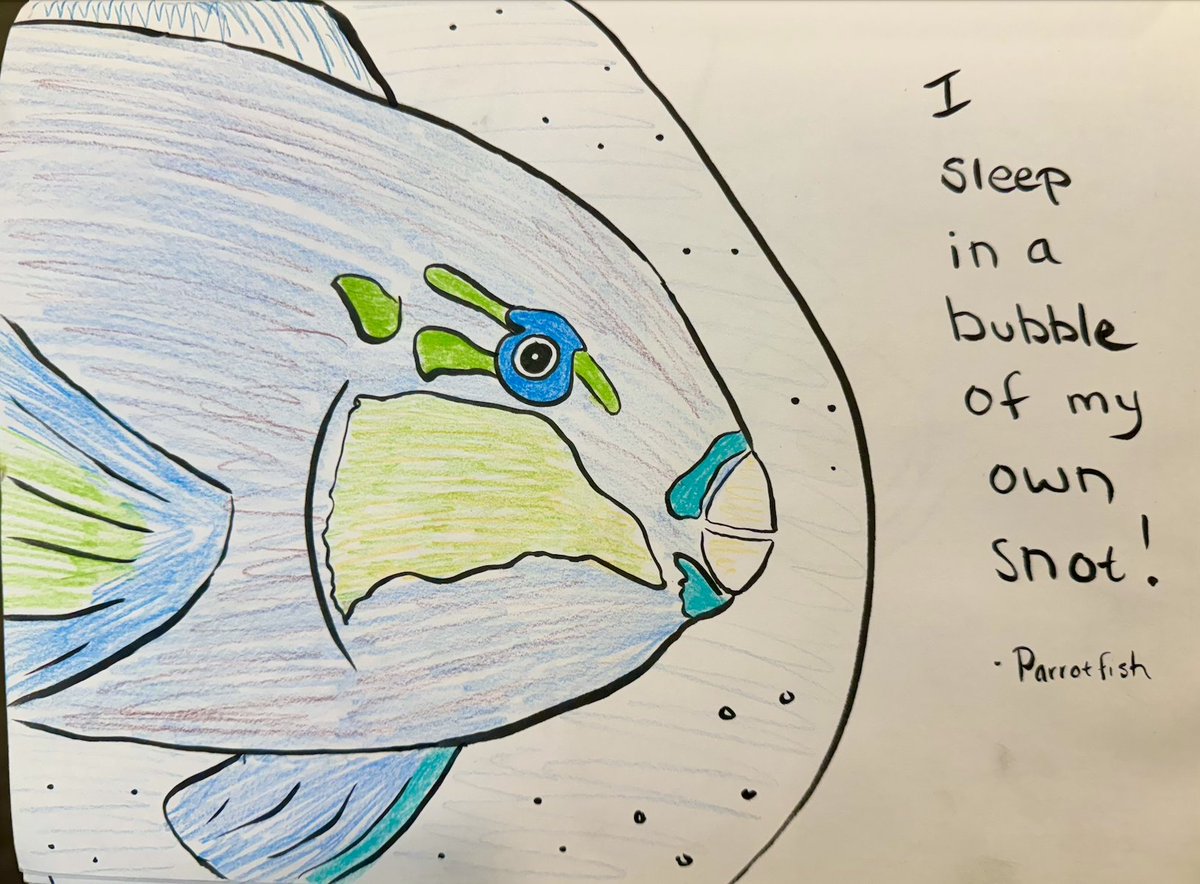 I
sleep
in a
bubble
of my
own
snot!
- Parrotfish